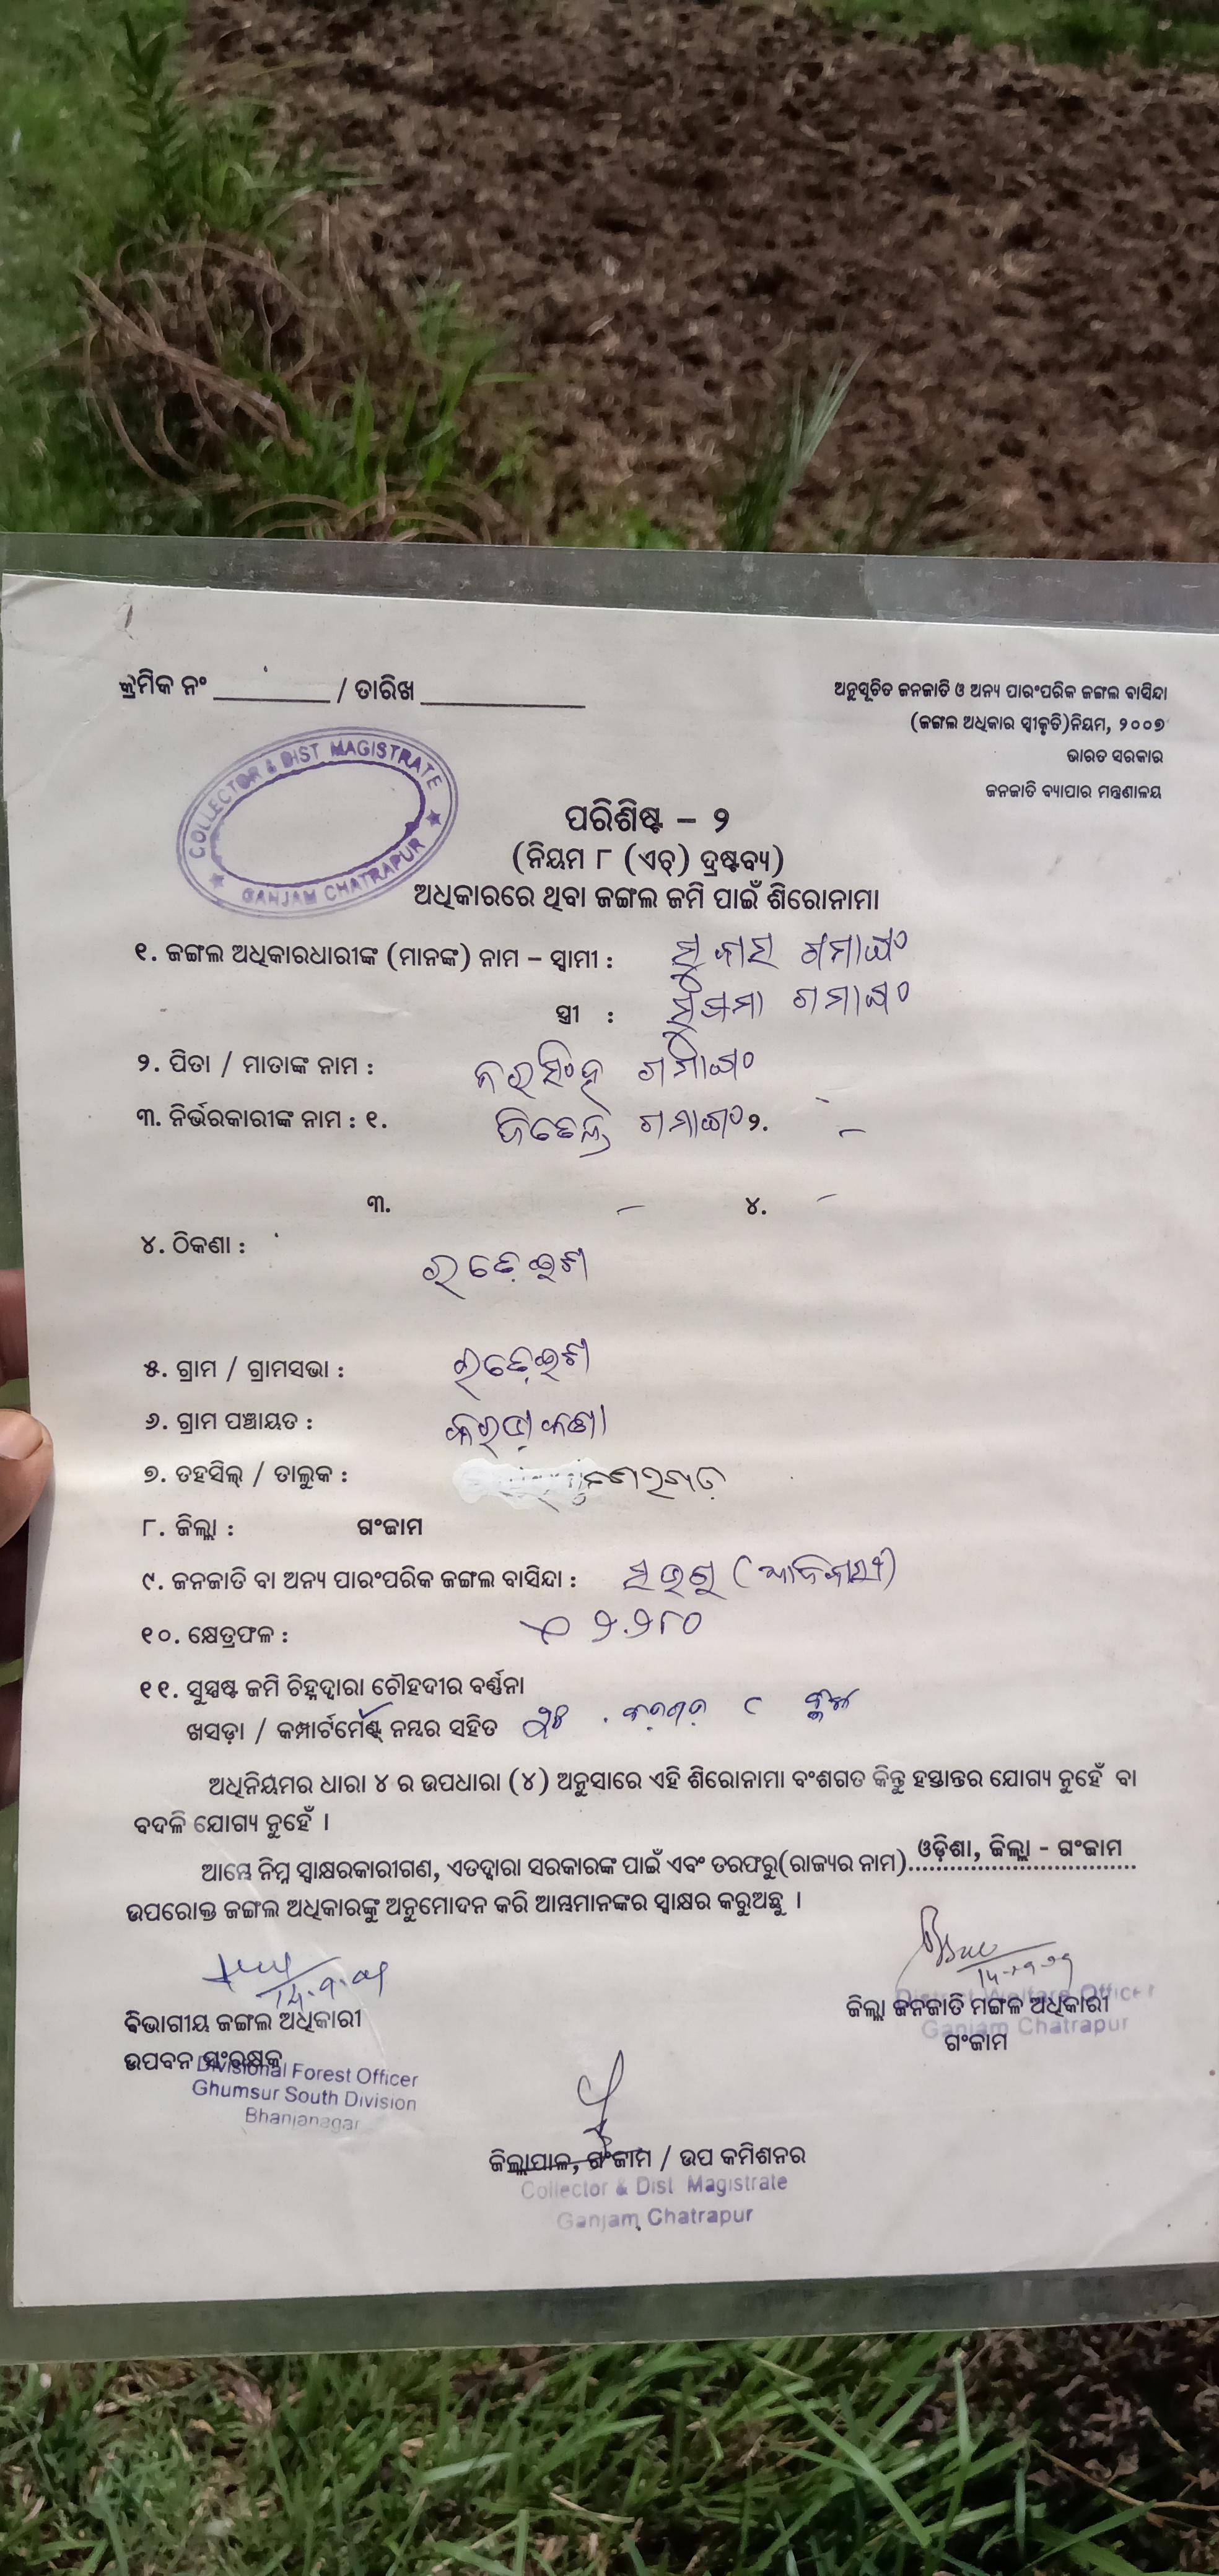 କ୍ରମିକ ନଂ / ତାରିଖ
ଅନୁସୂଚିତ ଜନଜାତି ଓ ଅନ୍ୟ ପାରଂପରିକ ଜଙ୍ଗଲ ବାସିନ୍ଦା
(ଜଙ୍ଗଲ ଅଧିକାର ସ୍ୱୀକୃତି) ନିୟମ, ୨୦୦୭
ଭାରତ ସରକାର
ଜନଜାତି ବ୍ୟାପାର ମନ୍ତ୍ରଣାଳୟ
COLLECTOR & DIST MAGISTRATE
GANJAM CHATRAPUR
ପରିଶିଷ୍ଟ – ୨
(ନିୟମ ୮ (ଏଚ୍) ଦ୍ରଷ୍ଟବ୍ୟ)
ଅଧିକାରରେ ଥିବା ଜଙ୍ଗଲ ଜମି ପାଇଁ ଶିରୋନାମା
୧. ଜଙ୍ଗଲ ଅଧିକାରଧାରୀଙ୍କ (ମାନଙ୍କ) ନାମ – ସ୍ୱାମୀ : ଗମାଙ୍ଗ
ସ୍ତ୍ରୀ : ସୁଷମା ଗମାଙ୍ଗ
୨. ପିତା / ମାତାଙ୍କ ନାମ : ନରସିଂହ ଗମାଙ୍ଗ
୩. ନିର୍ଭରକାରୀଙ୍କ ନାମ : ୧. ଗମାଙ୍ଗ ୨. –
୩. – ୪. –
୪. ଠିକଣା :
୫. ଗ୍ରାମ / ଗ୍ରାମସଭା :
୬. ଗ୍ରାମ ପଞ୍ଚାୟତ :
୭. ତହସିଲ୍ / ତାଲୁକ :
୮. ଜିଲ୍ଲା : ଗଂଜାମ
୯. ଜନଜାତି ବା ଅନ୍ୟ ପାରଂପରିକ ଜଙ୍ଗଲ ବାସିନ୍ଦା : (ଆଦିବାସୀ)
୧୦. କ୍ଷେତ୍ରଫଳ : ୨.୨୮୦
୧୧. ସୁସ୍ପଷ୍ଟ ଜମି ଚିହ୍ନଦ୍ୱାରା ଚୌହଦୀର ବର୍ଣ୍ଣନା
ଖସଡ଼ା / କମ୍ପାର୍ଟମେଣ୍ଟ ନମ୍ବର ସହିତ
ଅଧିନିୟମର ଧାରା ୪ ର ଉପଧାରା (୪) ଅନୁସାରେ ଏହି ଶିରୋନାମା ବଂଶଗତ କିନ୍ତୁ ହସ୍ତାନ୍ତର ଯୋଗ୍ୟ ନୁହେଁ ବା
ବଦଳି ଯୋଗ୍ୟ ନୁହେଁ ।
ଆମ୍ଭେ ନିମ୍ନ ସ୍ୱାକ୍ଷରକାରୀଗଣ, ଏତଦ୍ୱାରା ସରକାରଙ୍କ ପାଇଁ ଏବଂ ତରଫରୁ(ରାଜ୍ୟର ନାମ) ଓଡ଼ିଶା, ଜିଲ୍ଲା - ଗଂଜାମ
ଉପରୋକ୍ତ ଜଙ୍ଗଲ ଅଧିକାରଙ୍କୁ ଅନୁମୋଦନ କରି ଆମ୍ଭମାନଙ୍କର ସ୍ୱାକ୍ଷର କରୁଅଛୁ ।
ବିଭାଗୀୟ ଜଙ୍ଗଲ ଅଧିକାରୀ
ଉପବନ ସଂରକ୍ଷକ
Divisional Forest Officer
Ghumsur South Division
Bhanjanagar
ଜିଲ୍ଲା ଜନଜାତି ମଙ୍ଗଳ ଅଧିକାରୀ
ଗଂଜାମ
District Welfare Officer
Ganjam Chatrapur
ଜିଲ୍ଲାପାଳ, ଗଂଜାମ / ଉପ କମିଶନର
Collector & Dist. Magistrate
Ganjam, Chatrapur